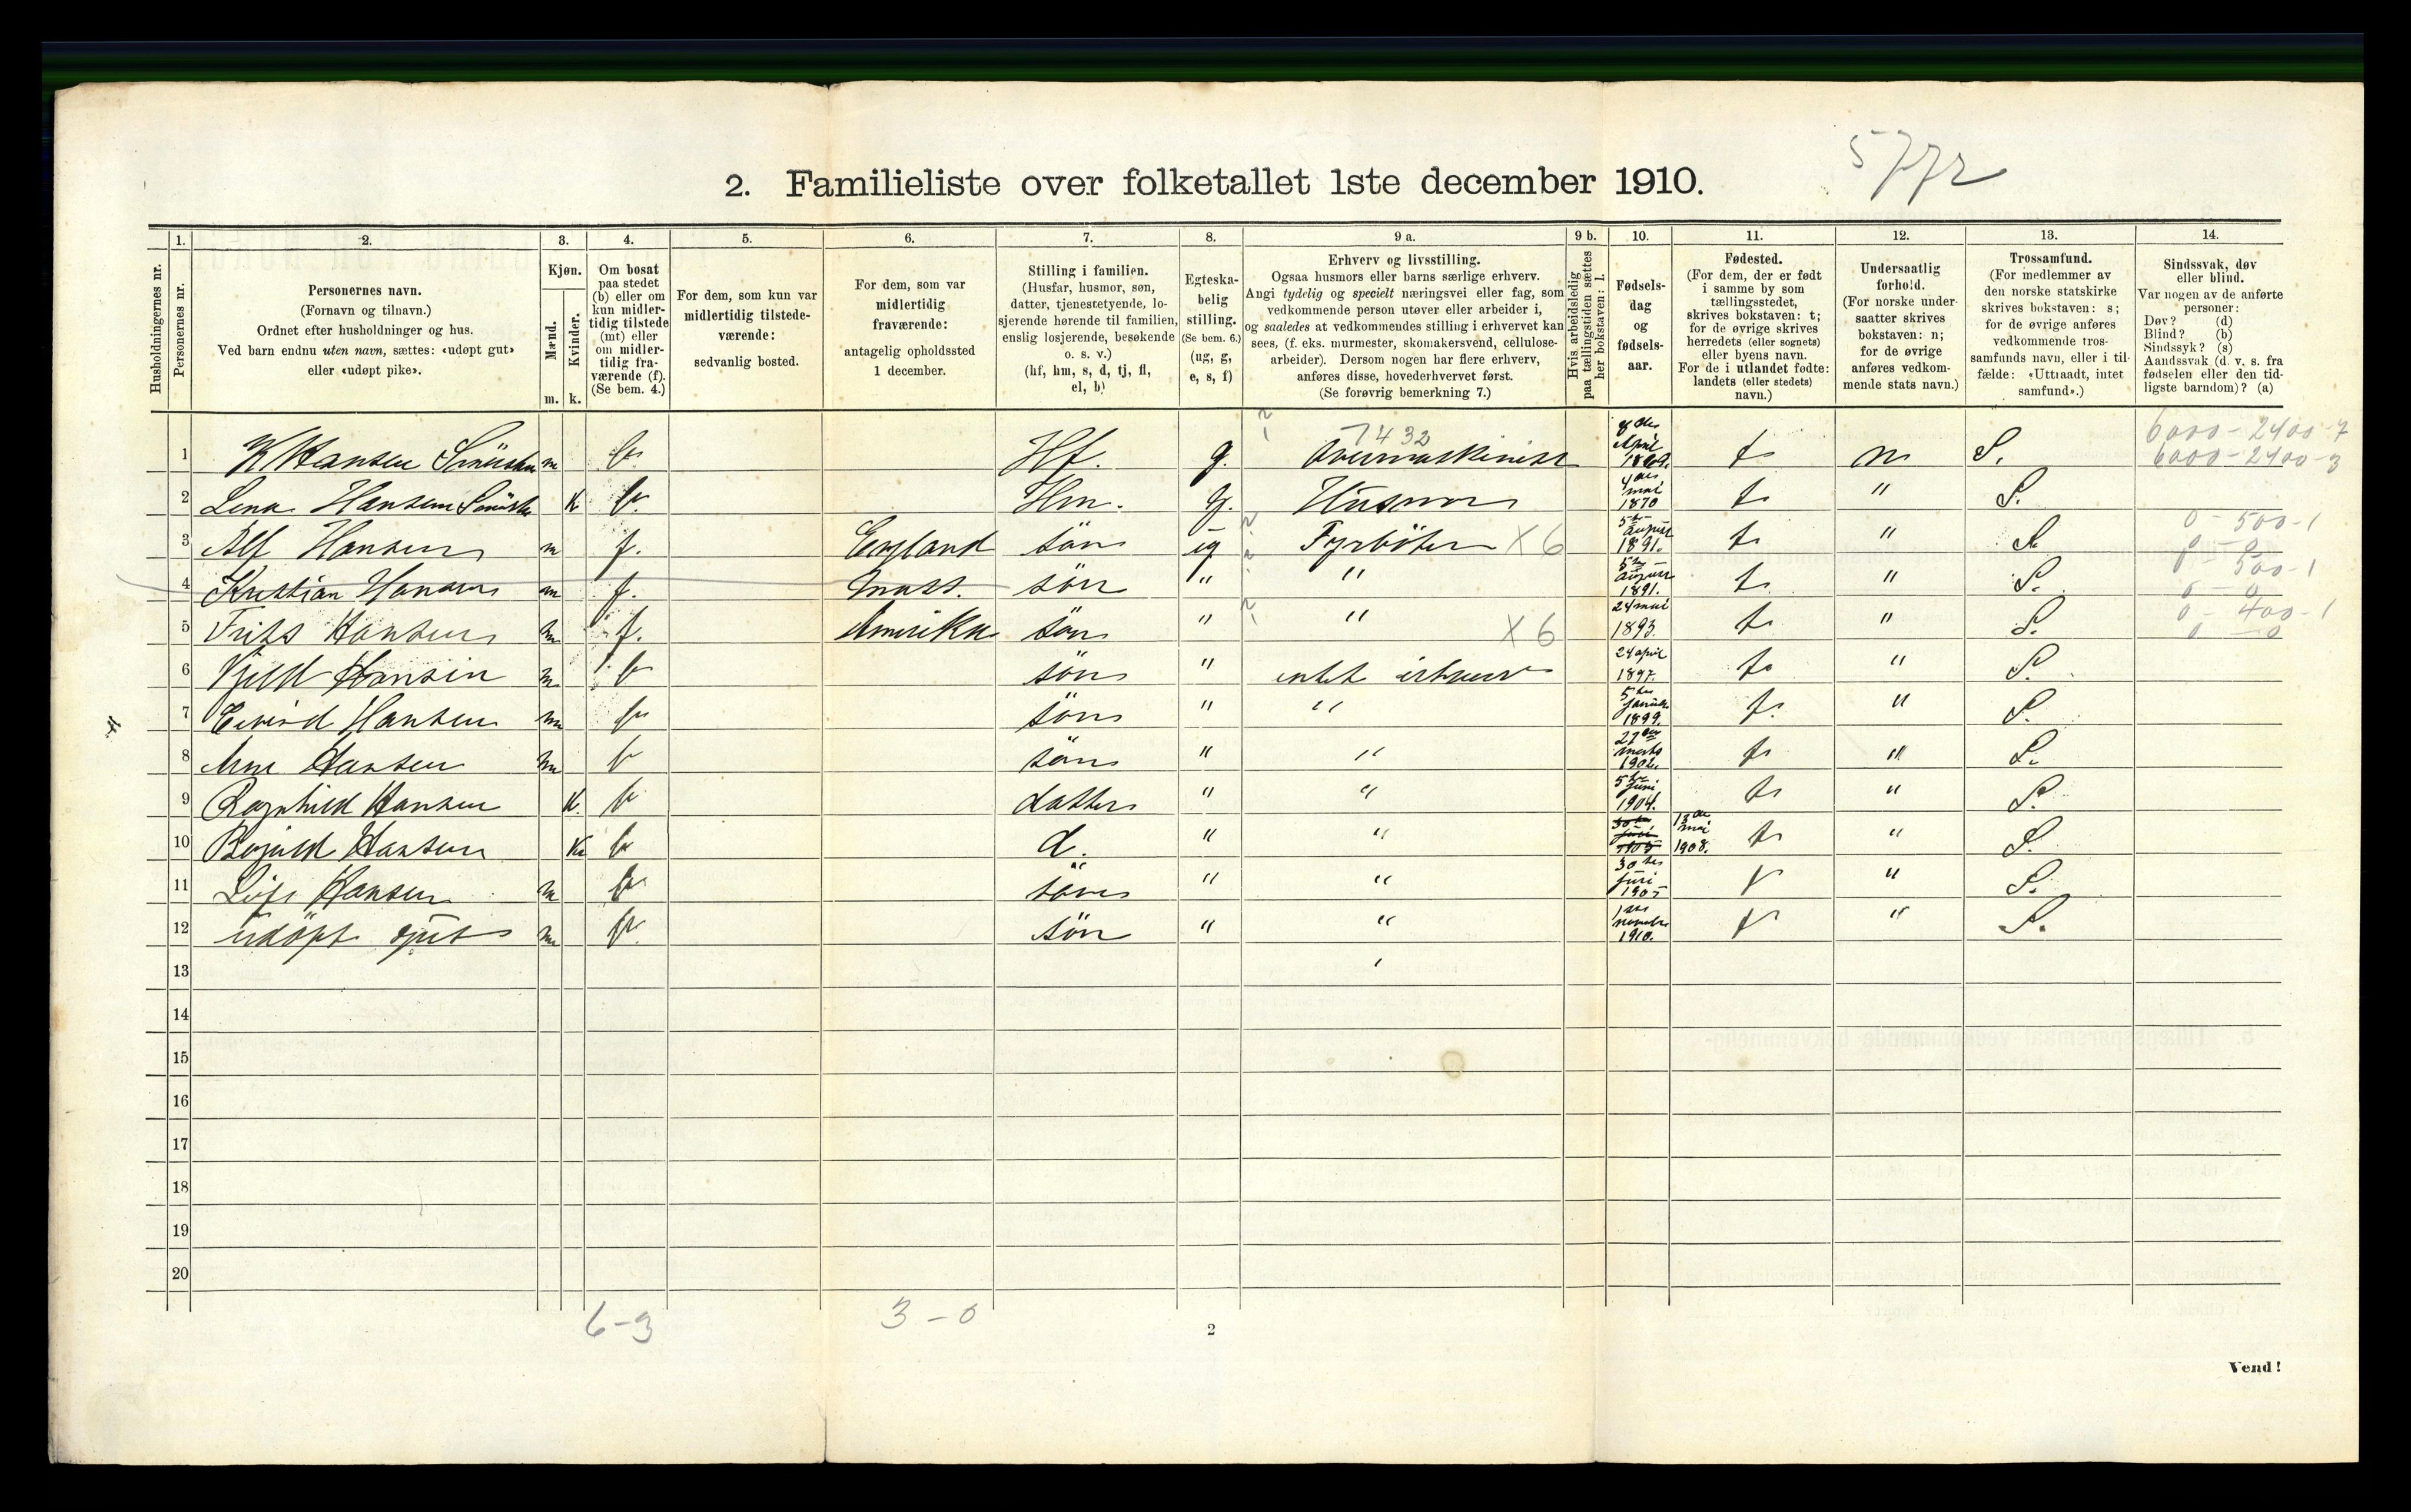 2. Familieliste over folketallet 1ste december 1910.
Husholdningernes nr.
1.
Personernes nr.
2.
Personernes navn.
(Fornavn og tilnavn.)
Ordnet efter husholdninger og hus.
Ved barn endnu uten navn, sættes: «udøpt gut»
eller «udøpt pike».
3.
Kjøn.
Mænd.
Kvinder.
m. k.
4.
Om bosat
paa stedet
(b) eller om
kun midler-
tidig tilstede
(mt) eller
om midler-
tidig fra-
værende (f).
(Se bem. 4.)
5.
For dem, som kun var
midlertidig tilstede-
værende:
sedvanlig bosted.
6.
For dem, som var
midlertidig
fraværende:
antagelig opholdssted
1 december.
7.
Stilling i familien.
(Husfar, husmor, søn,
datter, tjenestetyende, lo-
sjerende hørende til familien,
enslig losjerende, besøkende
o. s. v.)
(hf, hm, s, d, tj, fl,
el, b)
8.
Egteska-
belig
stilling.
(Se bem. 6.)
(ug, g,
e, s, f)
9 a.
Erhverv og livsstilling.
Ogsaa husmors eller barns særlige erhverv.
Angi tydelig og specielt næringsvei eller fag, som
vedkommende person utøver eller arbeider i,
og saaledes at vedkommendes stilling i erhvervet kan
sees, (f. eks. murmester, skomakersvend, cellulose-
arbeider). Dersom nogen har flere erhverv,
anføres disse, hovederhvervet først.
(Se forøvrig bemerkning 7.)
9 b.
Hvis arbeidsledig
paa tællingstiden sættes
her bokstaven: l.
10.
Fødsels-
dag
og
fødsels-
aar.
11.
Fødested.
(For dem, der er født
i samme by som
tællingsstedet,
skrives bokstaven: t;
for de øvrige skrives
herredets (eller sognets)
eller byens navn.
For de i utlandet fødte:
landets (eller stedets)
navn.)
12.
Undersaatlig
forhold.
(For norske under-
saatter skrives
bokstaven: n;
for de øvrige
anføres vedkom-
mende stats navn.)
13.
Trossamfund.
(For medlemmer av
den norske statskirke
skrives bokstaven: s;
for de øvrige anføres
vedkommende tros-
samfunds navn, eller i til-
fælde: «Uttraadt, intet
samfund».)
14.
Sindssvak, døv
eller blind.
Var nogen av de anførte
personer:
Døv? (d)
Blind? (b)
Sindssyk? (s)
Aandssvak (d. v. s. fra
fødselen eller den tid-
ligste barndom)? (a)
7432
6000-2400-7
1 K Hansen m b Hf. g. Overmaskinist April 1869. t n S. 6000-2400-3
2 Lena Hansen K b. Hm. g. Husmor mai 1870 t. " S.
0-500-1
3 Alf Hansen m f. England sön ug Fyrböter X6 5te august 1891. t. " S. 0-0
500-1
4 Kristian Hansen m f. sön " " 5te august 1891. t. " S. 0-0
0-400-1
5 Frits Hansen m f. Amerika sön " " X6 24 mai 1893. t. " S. 0-0
6 Hansen m b sön " intet erhverv 24 april 1897. t. " S.
7 Eivind Hansen m b sön " " 5te 1899. t. " S.
8 Arne Hansen m b sön " " marts 1902. t. " S.
9 Ragnhild Hansen K. b datter " " 5te juni 1904. t. " S.
10 Hansen K b d. " " mai 1908. t. " S.
11 Hansen m b sön " " 30te juni 1905 t " S.
12 udöpt gut m b sön " " 1ste 1910. t " S.
13
14
15
16
17
18
19
20
6-3 3-0
2
Vend!